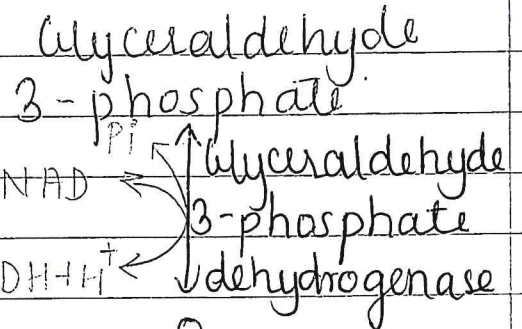 Glyceraldehyde
3-phosphate
Pi
Glyceraldehyde
NAD
3-phosphate
DH+H+
dehydrogenase